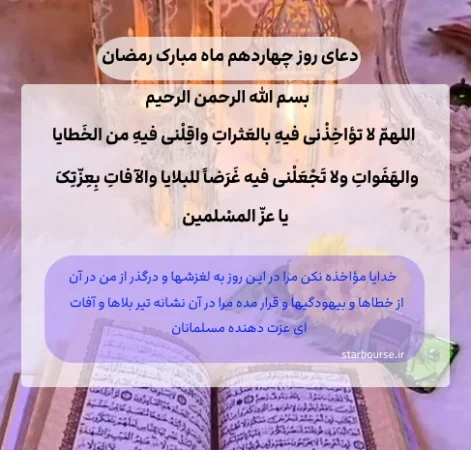 دعای روز چهاردهم ماه مبارک رمضان
بسم الله الرحمن الرحیم
اللهمّ لا تؤاخِذْنی فیهِ بالعَثراتِ واقِلْنی فیهِ من الخَطایا
والهَفَواتِ ولا تَجْعَلْنی فیه غَرَضاً للبلایا والآفاتِ بِعِزّتِکَ
یا عزّ المسْلمین
خدایا مؤاخذه نکن مرا در ایـن روز به لغزشها و درگذر از من در آن
از خطاها و بیهودگیها و قرار مده مرا در آن نشانه تیر بلاها و آفات
ای عزت دهنده مسلمانان
starbourse.ir